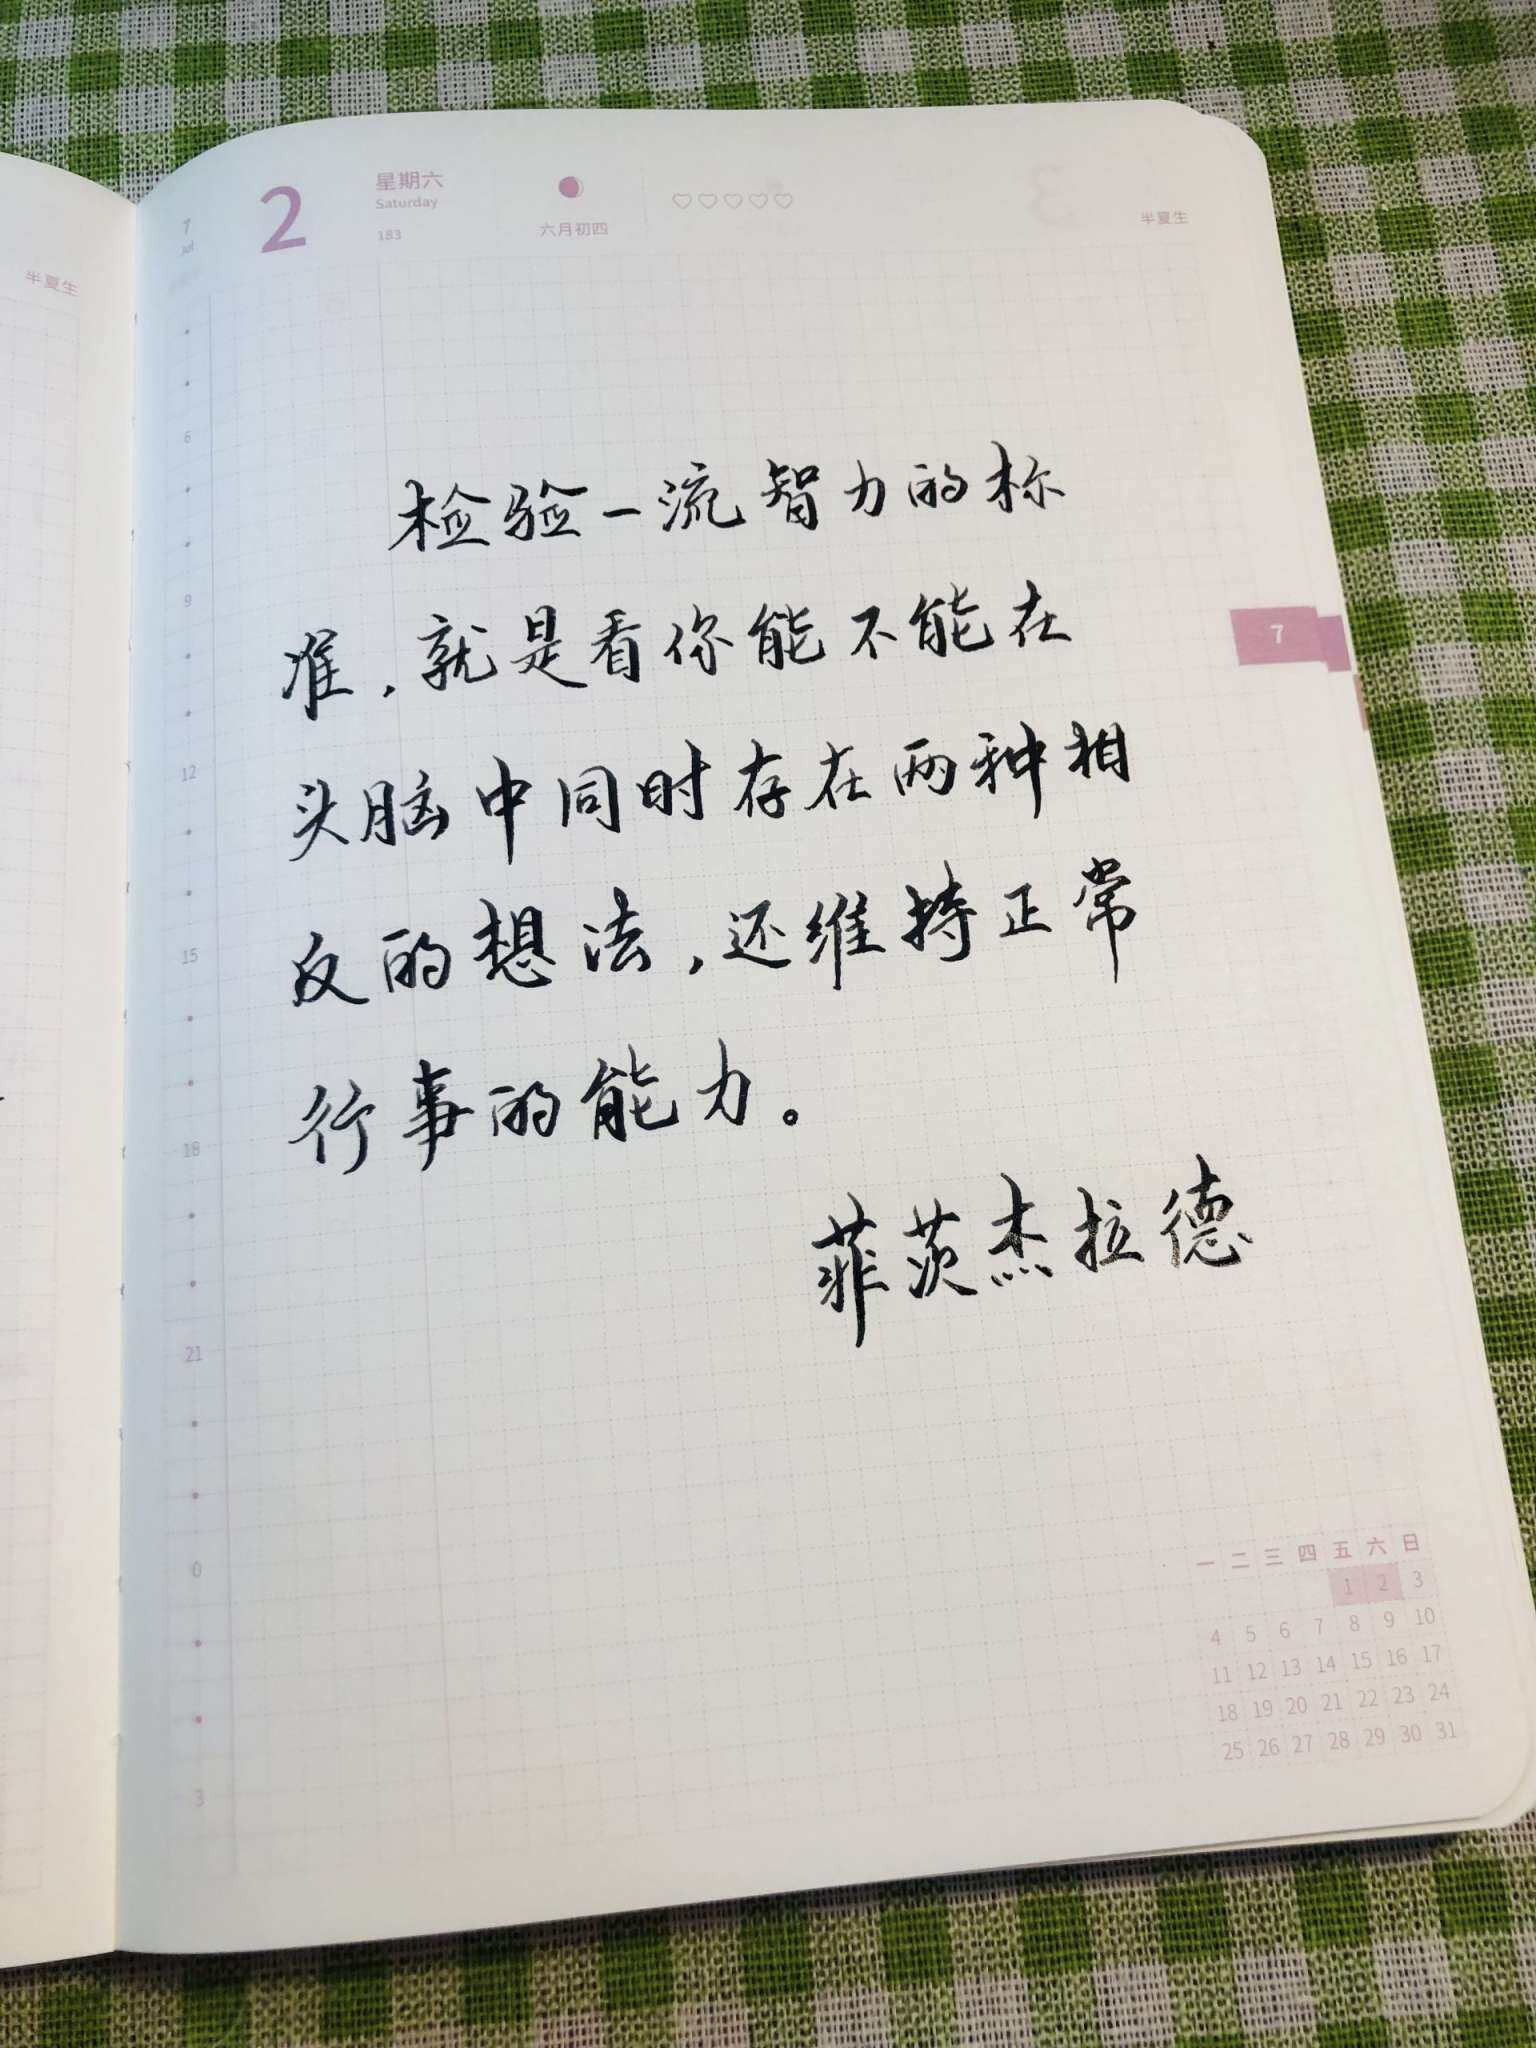 半夏生
7
Jul
2
星期六
Saturday
183
六月初四
半夏生
检验一流智力的标
准，就是看你能不能在
头脑中同时存在两种相
反的想法，还维持正常
行事的能力。
菲茨杰拉德
7
6
9
12
15
18
21
0
3
一 二 三 四 五 六 日
1 2 3
4 5 6 7 8 9 10
11 12 13 14 15 16 17
18 19 20 21 22 23 24
25 26 27 28 29 30 31